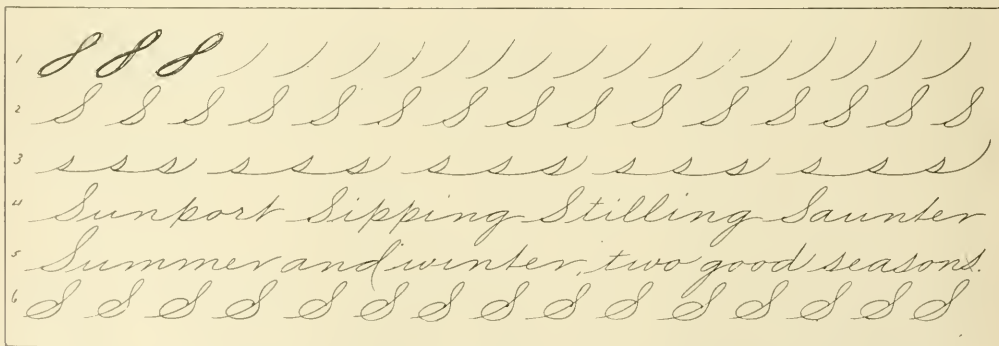 1
2 S S S S S S S S S S S S S S S
3 s s s s s s s s s s s s s s s
4 Sunport Sipping Stilling Saunter
5 Summer and winter, two good seasons.
6 S S S S S S S S S S S S S S